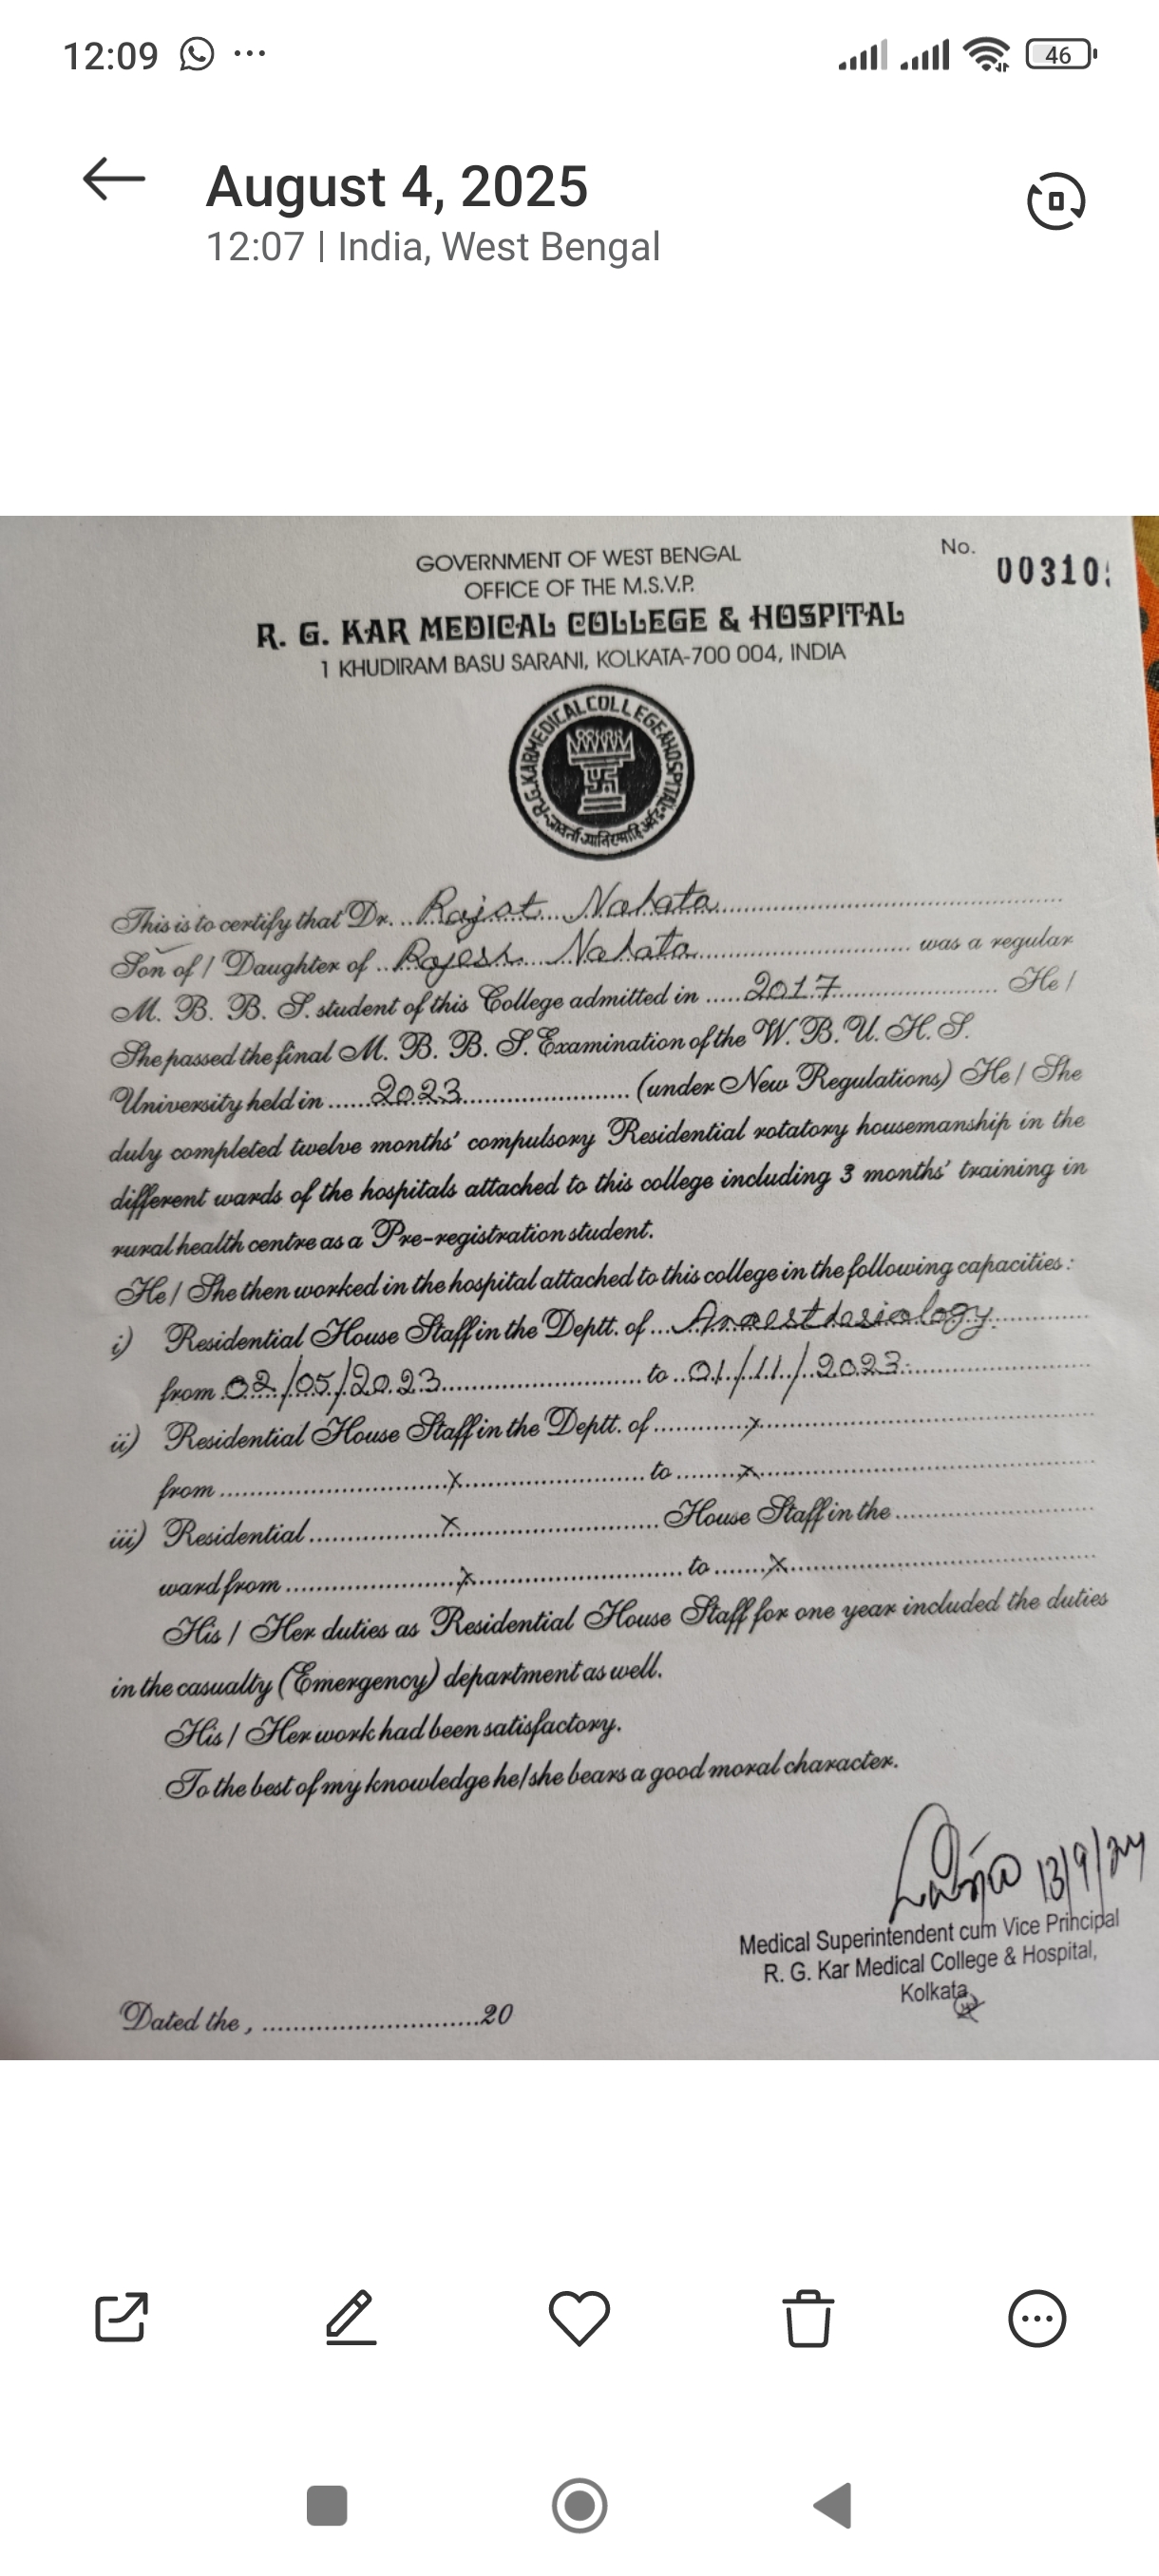 12:09 ...
46
August 4, 2025
12:07 | India, West Bengal
No.
GOVERNMENT OF WEST BENGAL
00310
OFFICE OF THE M.S.V.P.
R. G. KAR MEDICAL COLLEGE & HOSPITAL
1 KHUDIRAM BASU SARANI, KOLKATA-700 004, INDIA
R.G.KAR MEDICAL COLLEGE & HOSPITAL
This is to certify that Dr. Rajat Nahata
Son of / Daughter of Rajesh Nahata was a regular
M. B. B. S. student of this College admitted in 2017 He /
She passed the final M. B. B. S. Examination of the W. B. U. H. S.
University held in 2023 (under New Regulations) He / She
duly completed twelve months' compulsory Residential rotatory housemanship in the
different wards of the hospitals attached to this college including 3 months' training in
rural health centre as a Pre-registration student.
He / She then worked in the hospital attached to this college in the following capacities :
i) Residential House Staff in the Deptt. of Anaesthesiology.
from 02/05/2023 to 01/11/2023.
ii) Residential House Staff in the Deptt. of x
from x to x
iii) Residential x House Staff in the
ward from x to x
His / Her duties as Residential House Staff for one year included the duties
in the casualty (Emergency) department as well.
His / Her work had been satisfactory.
To the best of my knowledge he/she bears a good moral character.
13/9/24
Medical Superintendent cum Vice Principal
R. G. Kar Medical College & Hospital,
Kolkata
Dated the , ..............................20